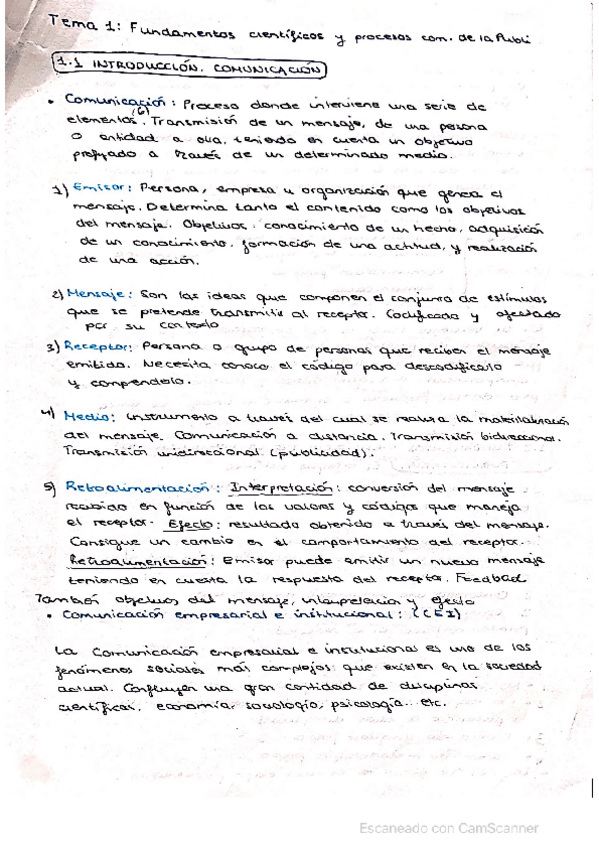 Tema 1: Fundamentos científicos y procesos com. de la Publi
1.1 INTRODUCCIÓN. COMUNICACIÓN
• Comunicación: Proceso donde interviene una serie de
elementos (6). Transmisión de un mensaje, de una persona
o entidad a otra, teniendo en cuenta un objetivo
prefijado a través de un determinado medio.
1) Emisor: Persona, empresa u organización que genera el
mensaje. Determina tanto el contenido como los objetivos
del mensaje. Objetivos: conocimiento de un hecho, adquisición
de un conocimiento, formación de una actitud, y realización
de una acción.
2) Mensaje: Son las ideas que componen el conjunto de estímulos
que se pretende transmitir al receptor. Codificado y afectado
por su contexto
3) Receptor: Persona o grupo de personas que reciben el mensaje
emitido. Necesita conocer el código para descodificarlo
y comprenderlo.
4) Medio: instrumento a través del cual se realiza la materialización
del mensaje. Comunicación a distancia. Transmisión bidireccional.
Transmisión unidireccional (publicidad).
5) Retroalimentación: Interpretación: conversión del mensaje
recibido en función de los valores y códigos que maneja
el receptor. Efecto: resultado obtenido a través del mensaje.
Consigue un cambio en el comportamiento del receptor.
Retroalimentación: Emisor puede emitir un nuevo mensaje
teniendo en cuenta la respuesta del receptor.
También objetivos del mensaje, interpretación y efecto
• Comunicación empresarial e institucional: (CEI)
La Comunicación empresarial e institucional es uno de los
fenómenos sociales más complejos que existen en la sociedad
actual. Confluyen una gran cantidad de disciplinas
científicas, economía, sociología, psicología... etc.
Escaneado con CamScanner